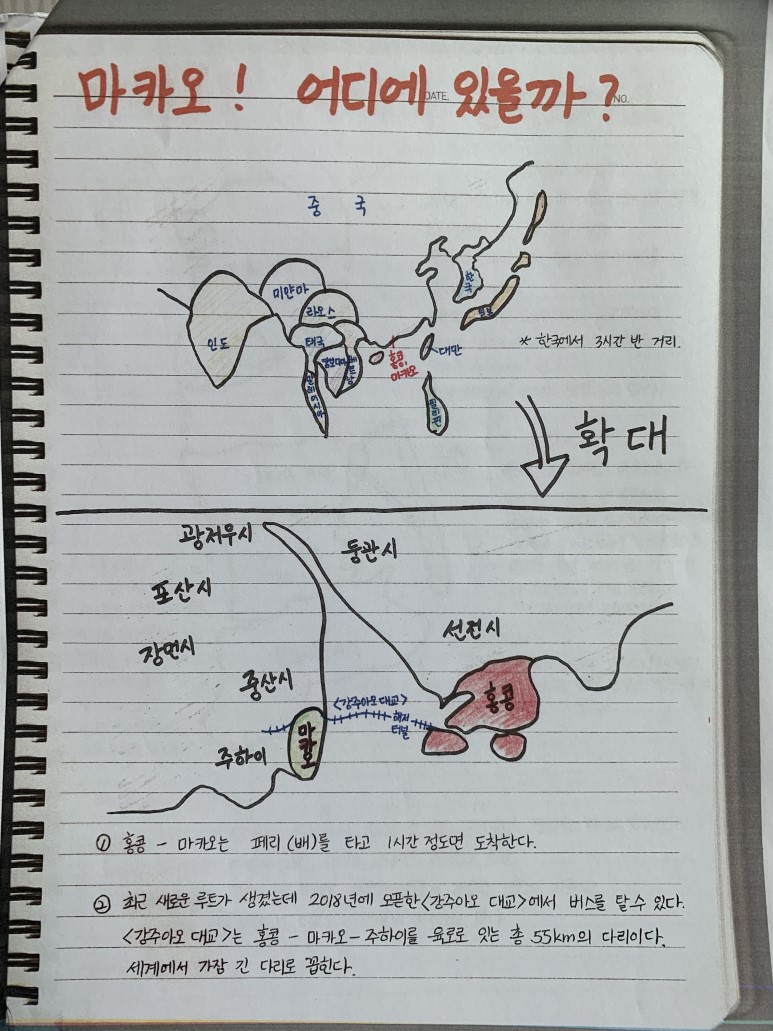 마카오! 어디에 있을까?
DATE. NO.
중 국
한국
미얀마
라오스
인도
태국
캄보디아
베트남
말레이시아
홍콩,
마카오
대만
일본
필리핀
※ 한국에서 3시간 반 거리.
확대
광저우시
둥관시
포산시
선전시
장먼시
중산시
홍콩
<강주아오 대교>
해저
터널
마카오
주하이
① 홍콩 - 마카오는 페리 (배)를 타고 1시간 정도면 도착한다.
② 최근 새로운 루트가 생겼는데 2018년에 오픈한 <강주아오 대교>에서 버스를 탈 수 있다.
<강주아오 대교>는 홍콩 - 마카오 - 주하이를 육로로 잇는 총 55km의 다리이다.
세계에서 가장 긴 다리로 꼽힌다.